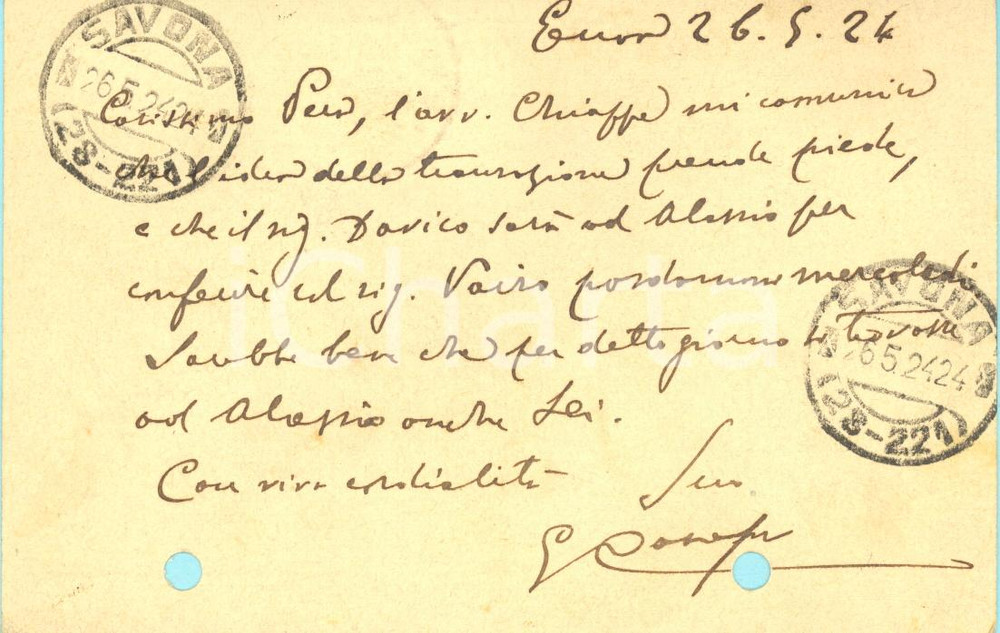 26.5.24
SAVONA
26.5.24 24
(28-221)
Carissimo Pera, l'avv. Chiappe mi comunica
che l'idea della transazione prende piede,
e che il sig. Davico sarà ad Alassio per
conferire col sig. Vairo posdomani mercoledì
Sarebbe bene che per detto giorno si trovasse
ad Alassio anche Lei.
SAVONA
26.5.24 24
(28-221)
Con viva cordialità
Suo
iCharta